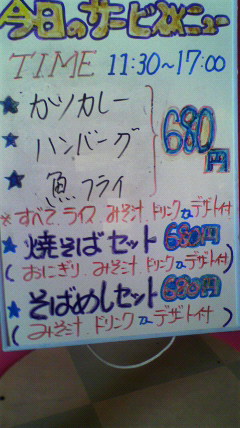 今日のサービスメニュー
TIME 11:30～17:00
★カツカレー
★ハンバーグ
★魚フライ
680円
※すべて、ライス、みそ汁、ドリンク or デザート付
★焼そばセット 680円
(おにぎり、みそ汁、ドリンク or デザート付)
★そばめしセット 680円
(みそ汁、ドリンク or デザート付)